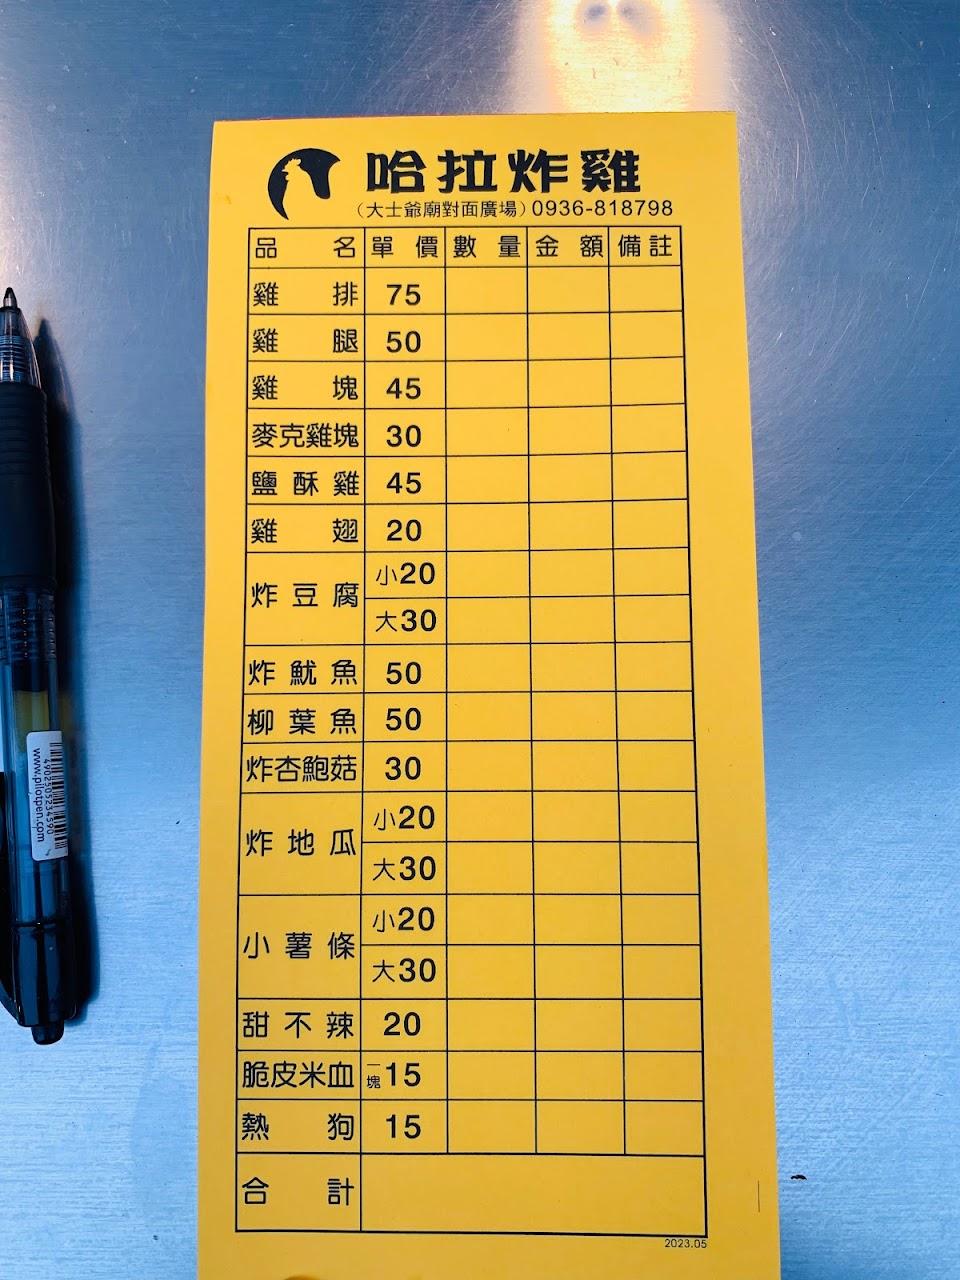 哈拉炸雞
（大士爺廟對面廣場）0936-818798
品名 單價 數量 金額 備註
雞排 75
雞腿 50
雞塊 45
麥克雞塊 30
鹽酥雞 45
雞翅 20
炸豆腐 小20
大30
炸魷魚 50
柳葉魚 50
炸杏鮑菇 30
炸地瓜 小20
大30
小薯條 小20
大30
甜不辣 20
脆皮米血 一塊15
熱狗 15
合計
2023.05
4902505234590
www.pilotpen.com